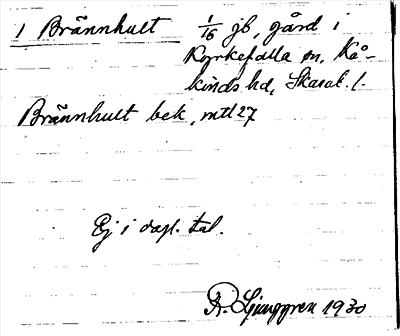 1 Brännhult 1/16 jb, gård i
Kyrkefalla sn, Kå-
kinds hd, Skarab. l.
Brännhult bek, mtl 27
Ej i dagl. tal.
R. Ljunggren 1930